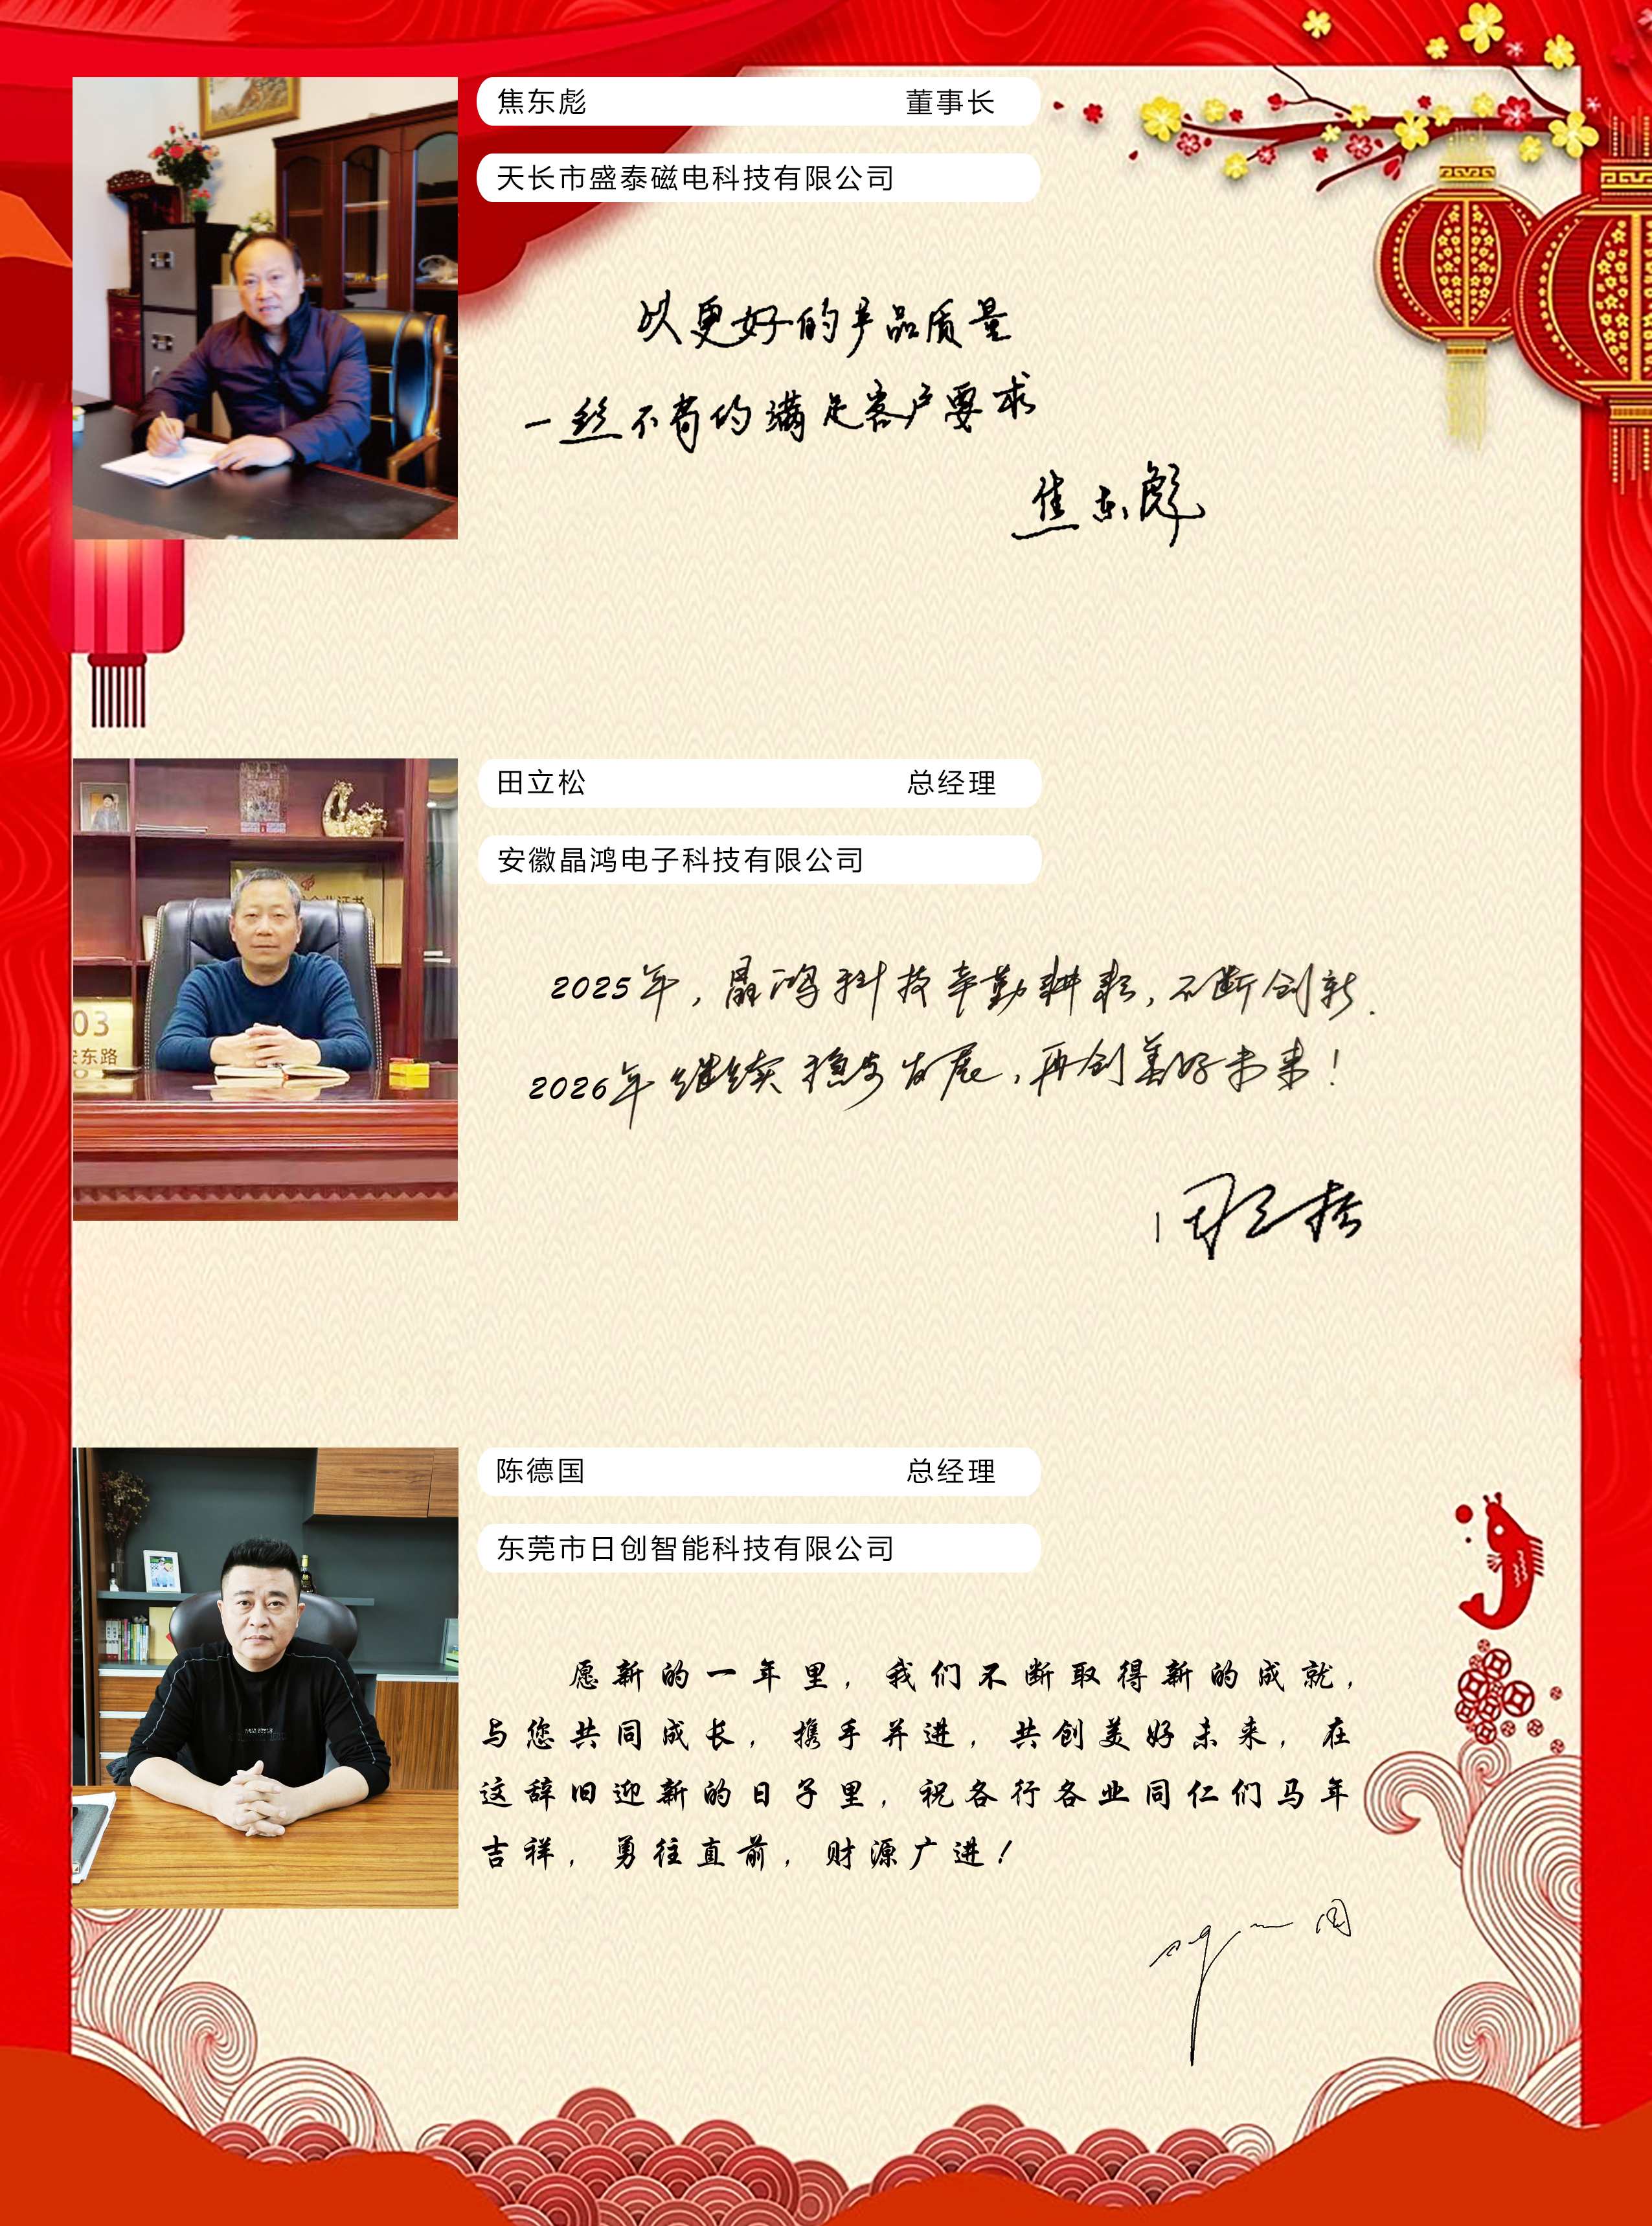 焦东彪 董事长
天长市盛泰磁电科技有限公司
以更好的产品质量
一丝不苟的满足客户要求
焦东彪
田立松 总经理
安徽晶鸿电子科技有限公司
2025年，晶鸿科技辛勤耕耘，不断创新.
2026年继续稳步发展，再创美好未来！
田立松
03
安东路
陈德国 总经理
东莞市日创智能科技有限公司
愿新的一年里，我们不断取得新的成就，
与您共同成长，携手并进，共创美好未来，在
这辞旧迎新的日子里，祝各行各业同仁们马年
吉祥，勇往直前，财源广进！